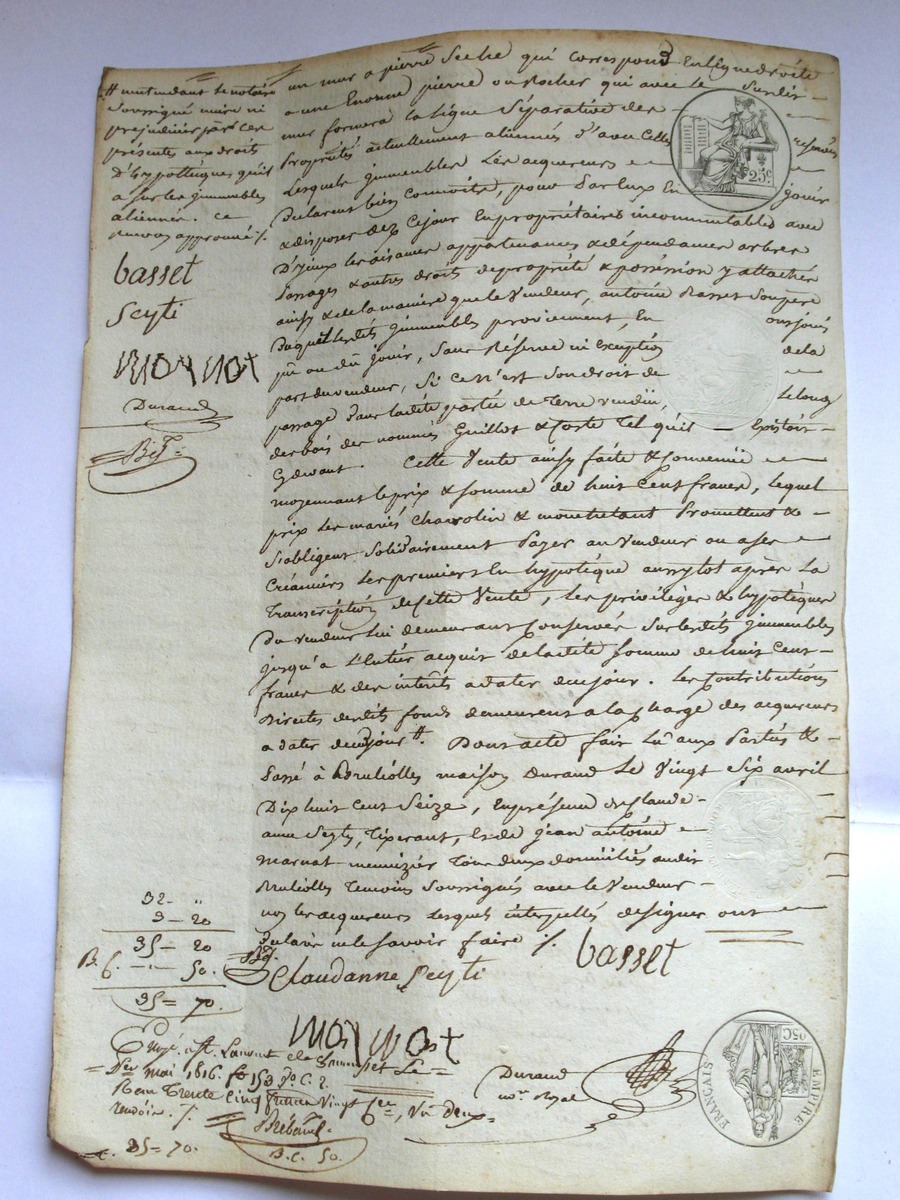 # n'entendant le notaire
soussigné nuire ni
préjudicier par ces
présentes aux droits
D'hypotteques qu'il
a sur les jmmeubles
aliennés. ce
renvoy approuvé /.
basset
Seyti
Durand
un mur a pierre Seche qui correspond En ligne droite
a une Enorme pierre ou Rocher qui avec le Susdit
mur formera la ligne Séparative des
Propriétés actuellement aliennés d'avec Celles réservées
Lesquels jmmeubles Les acquereurs
Declarent bien Connoitre, pour Par Eux En jouir
& disposer dez Cejour En propriétaires incommutables avec
D'yceux les aisances appartenances & dépendances arbres
Passages & autres droits de propriété & possession y attachés
ainsy & de la manière que le Vendeur, antoine Basset Son pere
Duquel lesdits jmmeubles proviennent, En ont joui
ou dû jouir, Sans Réserve ni Exception dela
part du vendeur, Si ce n'est Son droit de
passage dans ladite partie de Terre vendüe, Le long
des bois des nommés Guillot & Coste Tel qu'il Existoit
Cydevant. Cette Vente ainsy faite & Convenüe
moyennant le prix & Somme de huit Cent francs, Lequel
prix Les mariés Charvolin & montretant Promettent &
S'obligent Solidairement Payer au Vendeur ou a Ses
Créanciers Les premiers En hypotéque aussytot après La
Transcription de Cette Vente, Les privileges & hypotéques
Du vendeur Lui demeurant Conservés Sur lesdits jmmeubles
jusqu'a L'Entier acquit de ladite Somme de huit Cent
francs & des intérêts a dater de cejour. Les Contributions
Directes desdits fonds demeurent a la Charge des acquereurs
a dater de cejour #. Dont acte fait Lû aux Parties &
Passé à Brulliolles maison Durand Le Vingt Six avril
Dix huit Cent Seize, En présence de Claude
anne Seyti, Tixerant, & de jean antoine
marnat menuizier Tous deux domiciliés audit
Brulliolles Temoins Soussignés avec le Vendeur
non les acquereurs Lesquels interpellés de signer ont
Declaré ne le Savoir faire /.
basset
Claudanne Seyti
Durand
not. Royal
32 - "
3 - 20
35 - 20
B. 6. - 50.
35 = 70.
Enrgé. à St. Laurent de Chamousset Le
1er mai 1816. fo 153 Vo C. 2.
Reçu Trente Cinq francs Vingt Ces, Vu deux
renvois. /.
B. C. 50.
35 = 70.
25c
EMPIRE
FRANÇAIS